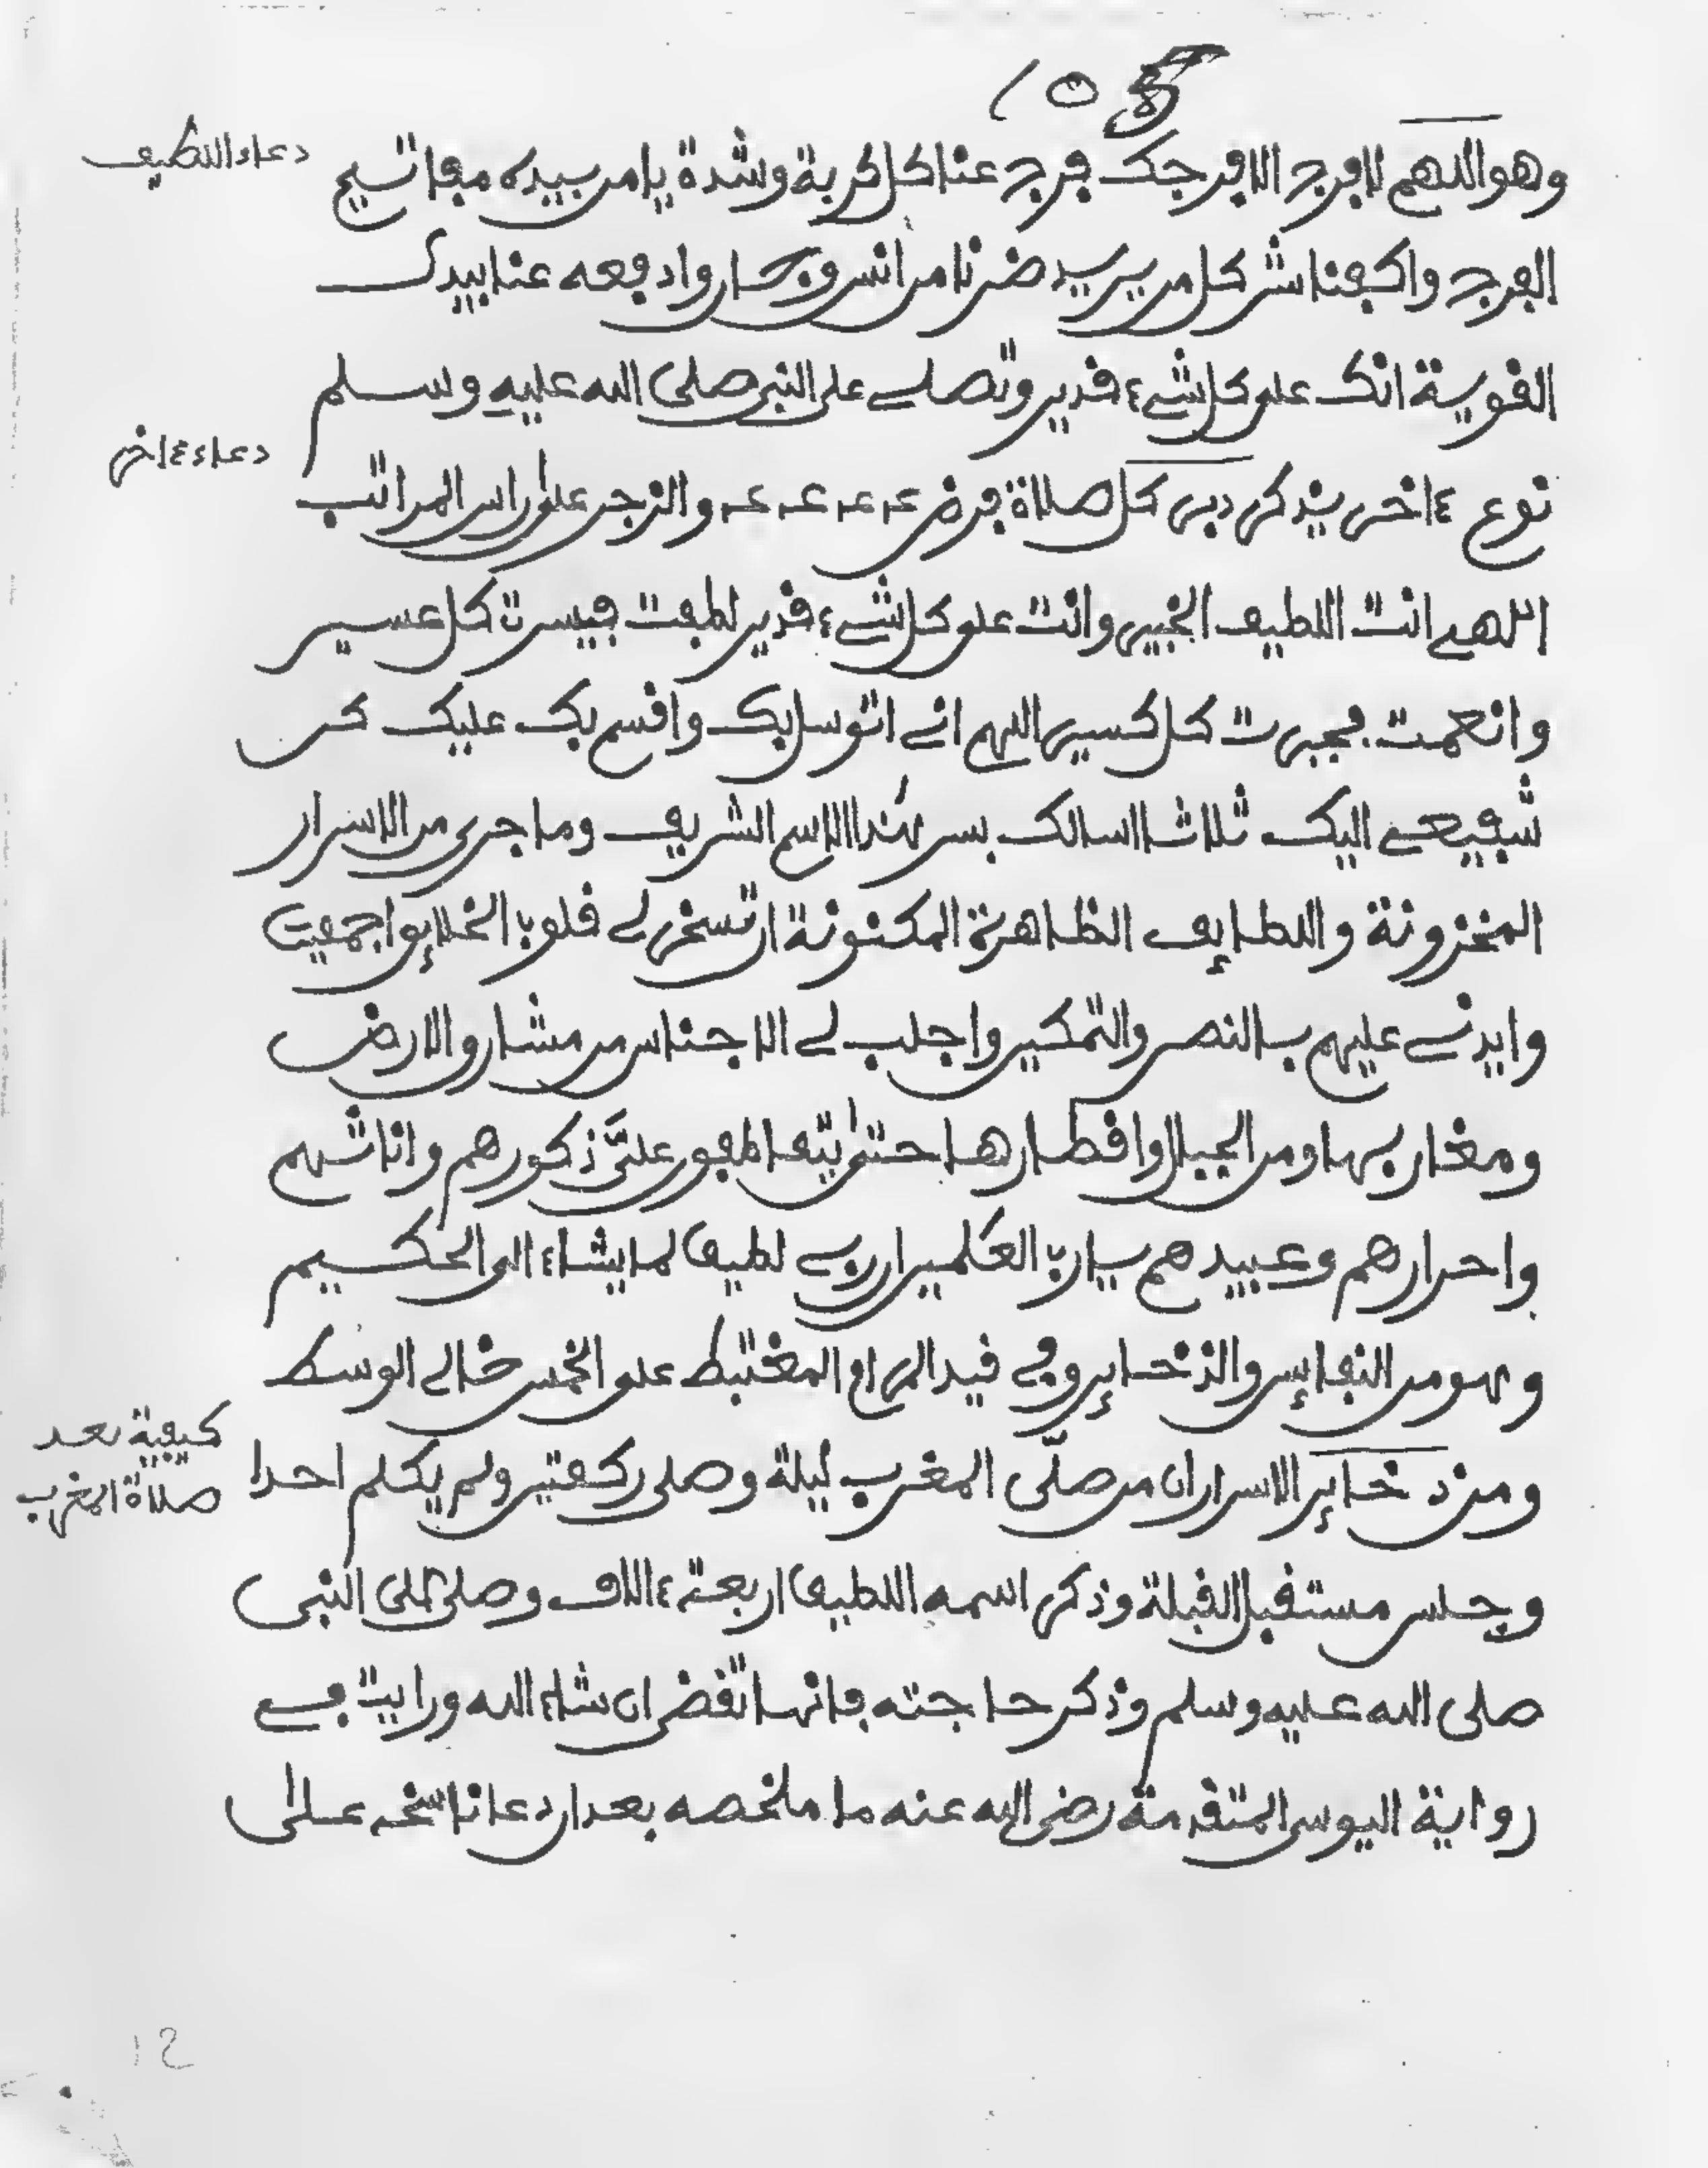 وهو اللهم لا فرج الا فرجك فرج عنا كل كربة وشدة يا من بيده مفاتيح
دعاء اللطيف
الفرج واكفنا شر كل من يريد ضرنا من انس وجان وادفعه عنا بيدك
القوية انك على كل شيء قدير وتصلي على النبي صلى الله عليه وسلم
دعاء ءاخر
نوع ءاخر يذكر دبر كل صلاة فرض والزجر على راس المراتب
الهي انت اللطيف الخبير وانت على كل شيء قدير لطفت فيسرت كل عسير
وانعمت فجبرت كل كسير اللهم اني اتوسل بك واقسم بك عليك كن
شفيعي اليك ثلاثا اسالك بسر هذا الاسم الشريف وما جرى من الاسرار
المخزونة واللطايف الظاهرة المكنونة ان تسخر لي قلوب الخلايق اجمعين
وايدني عليهم بالنصر والتمكين واجلب لي الاجناس من مشارق الارض
ومغاربها ومن الجبال واقطارها حتى علي ذكورهم واناثهم
واحرارهم وعبيدهم يا رب العلمين ان ربي لطيف لما يشاء الى الحكيم
وهو من النفايس والذخاير وفي قيد المغتبط على الخمس خالي الوسط
كيفية بعد
صلاة المغرب
ومن ذخاير الاسرار ان من صلى المغرب ليلة وصلى ركعتين ولم يكلم احدا
وجلس مستقبل القبلة وذكر اسمه اللطيف اربعة ءالاف وصلى على النبي
صلى الله عليه وسلم وذكر حاجته فانها تقضى ان شاء الله ورايت في
رواية اليوسي المتقدمة رضي الله عنه ما ملخصه بعد ان دعا ناسخه على
12